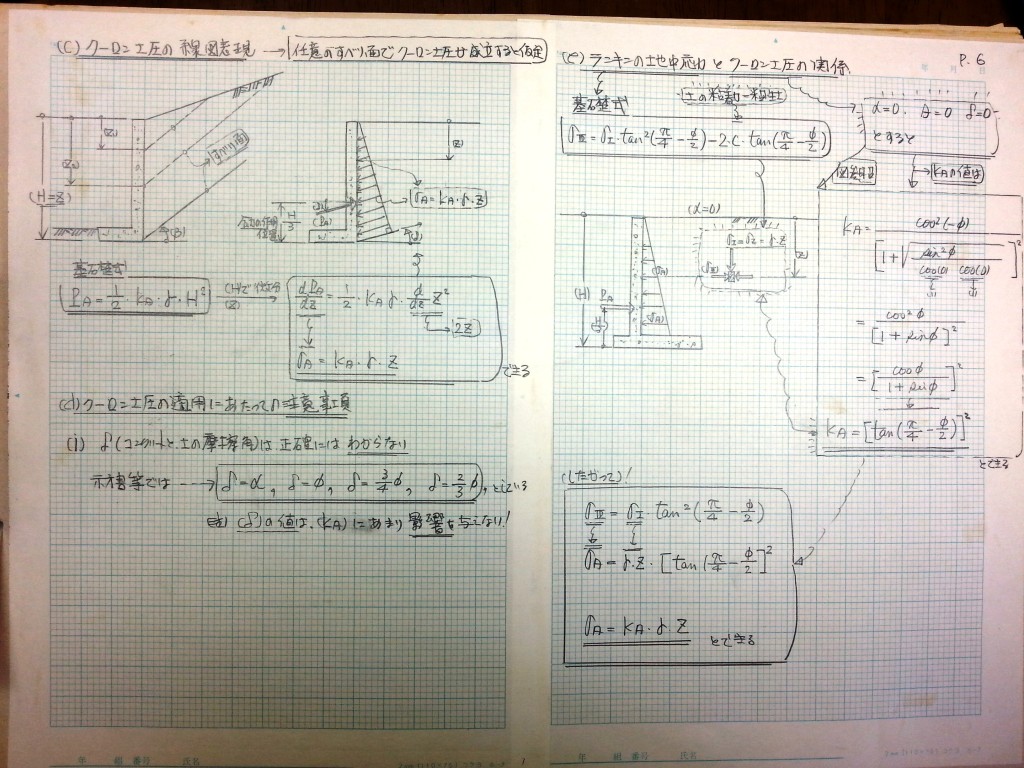 (C) クーロン土圧の線図表現 → 任意のすべり面でクーロン土圧が成立すると仮定
(Z1)
(Z2)
(H=Z)
すべり面
(β)
(Z)
σA = KA・γ・Z
H/3
(PA)
基礎式
PA = 1/2・KA・γ・H²
(Hで微分)
(Z)
dPA/dZ = 1/2・KA γ・d/dZ Z²
2Z
σA = KA・γ・Z
できる
(d) クーロン土圧の適用にあたっての注意事項
(i) δ(コンクリートと土の摩擦角)は正確にはわからない
示方書等では ---→ δ=α, δ=φ, δ=3/4φ, δ=2/3φ, としている
(δ)の値は、(KA)にあまり影響を与えない!
P. 6
(e) ランキンの土中応力とクーロン土圧の関係
基礎式
土の粘着力-粘性土
σⅢ = σⅠ・tan²(π/4 − φ/2) − 2・C・tan(π/4 − φ/2)
α=0 β=0 δ=0
とすると
KAの値は
(α=0)
σⅠ=σZ=γ・Z
(Z)
σⅢ
(σA)
(σA)
(H)
PA
H/3
KA = cos²(−φ) / [1+√(sin²φ / cos(0) cos(0))]²
= cos²φ / [1 + sinφ]²
= [cosφ / 1 + sinφ]²
KA = [tan(π/4 − φ/2)]²
とできる
(したがって)!
σⅢ = σⅠ・tan²(π/4 − φ/2)
σA = γ・Z・[tan(π/4 − φ/2]²
σA = KA・γ Z とできる
年 組 番号 氏名
年 組 番号 氏名